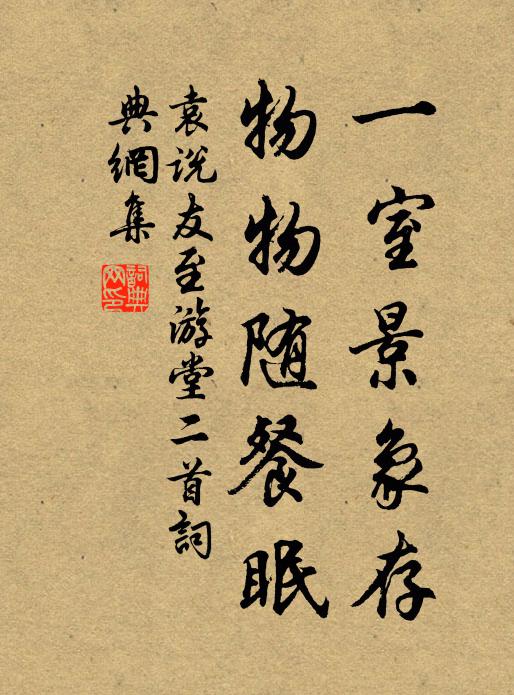 一室景象存
物物随餐眠
袁说友至游堂二首詞
典網集
詞典
网印